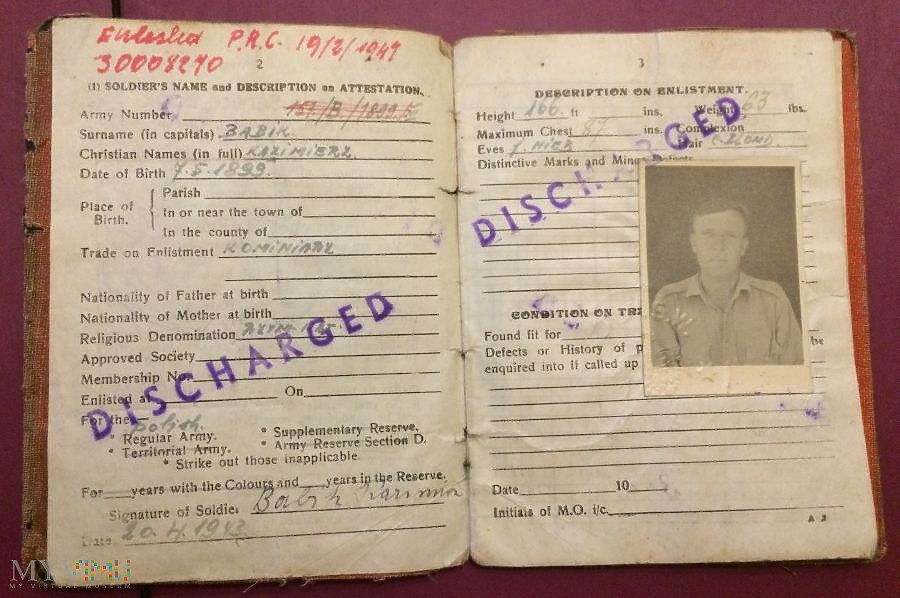 Enlisted P.R.C. 19/2/1947
30008270
2
(1) SOLDIER'S NAME and DESCRIPTION on ATTESTATION.
Army Number 151/B/1899/5
Surname (in capitals) BABIK
Christian Names (in full) KAZIMIERZ.
Date of Birth 7.5.1899.
Place of Birth.
Parish
In or near the town of
In the county of
Trade on Enlistment KOMINIARZ
Nationality of Father at birth
Nationality of Mother at birth
Religious Denomination
Approved Society
Membership No.
Enlisted at On
For the:— Polish.
* Regular Army. * Supplementary Reserve.
* Territorial Army. * Army Reserve Section D.
* Strike out those inapplicable.
For years with the Colours and years in the Reserve.
Signature of Soldier Babik Kazimierz
Date 20.4.1943.
DISCHARGED
3
DESCRIPTION ON ENLISTMENT.
Height 166 ft ins. Weight 63 lbs.
Maximum Chest 87 ins. Complexion
Eyes J. NIEB Hair C. BLOND.
Distinctive Marks and Minor Defects
DISCHARGED
CONDITION ON
Found fit for
Defects or History of be
enquired into if called up
Date 10
Initials of M.O. i/c.
A-2
MY VIMU
MY VIRTUAL MUSEUM